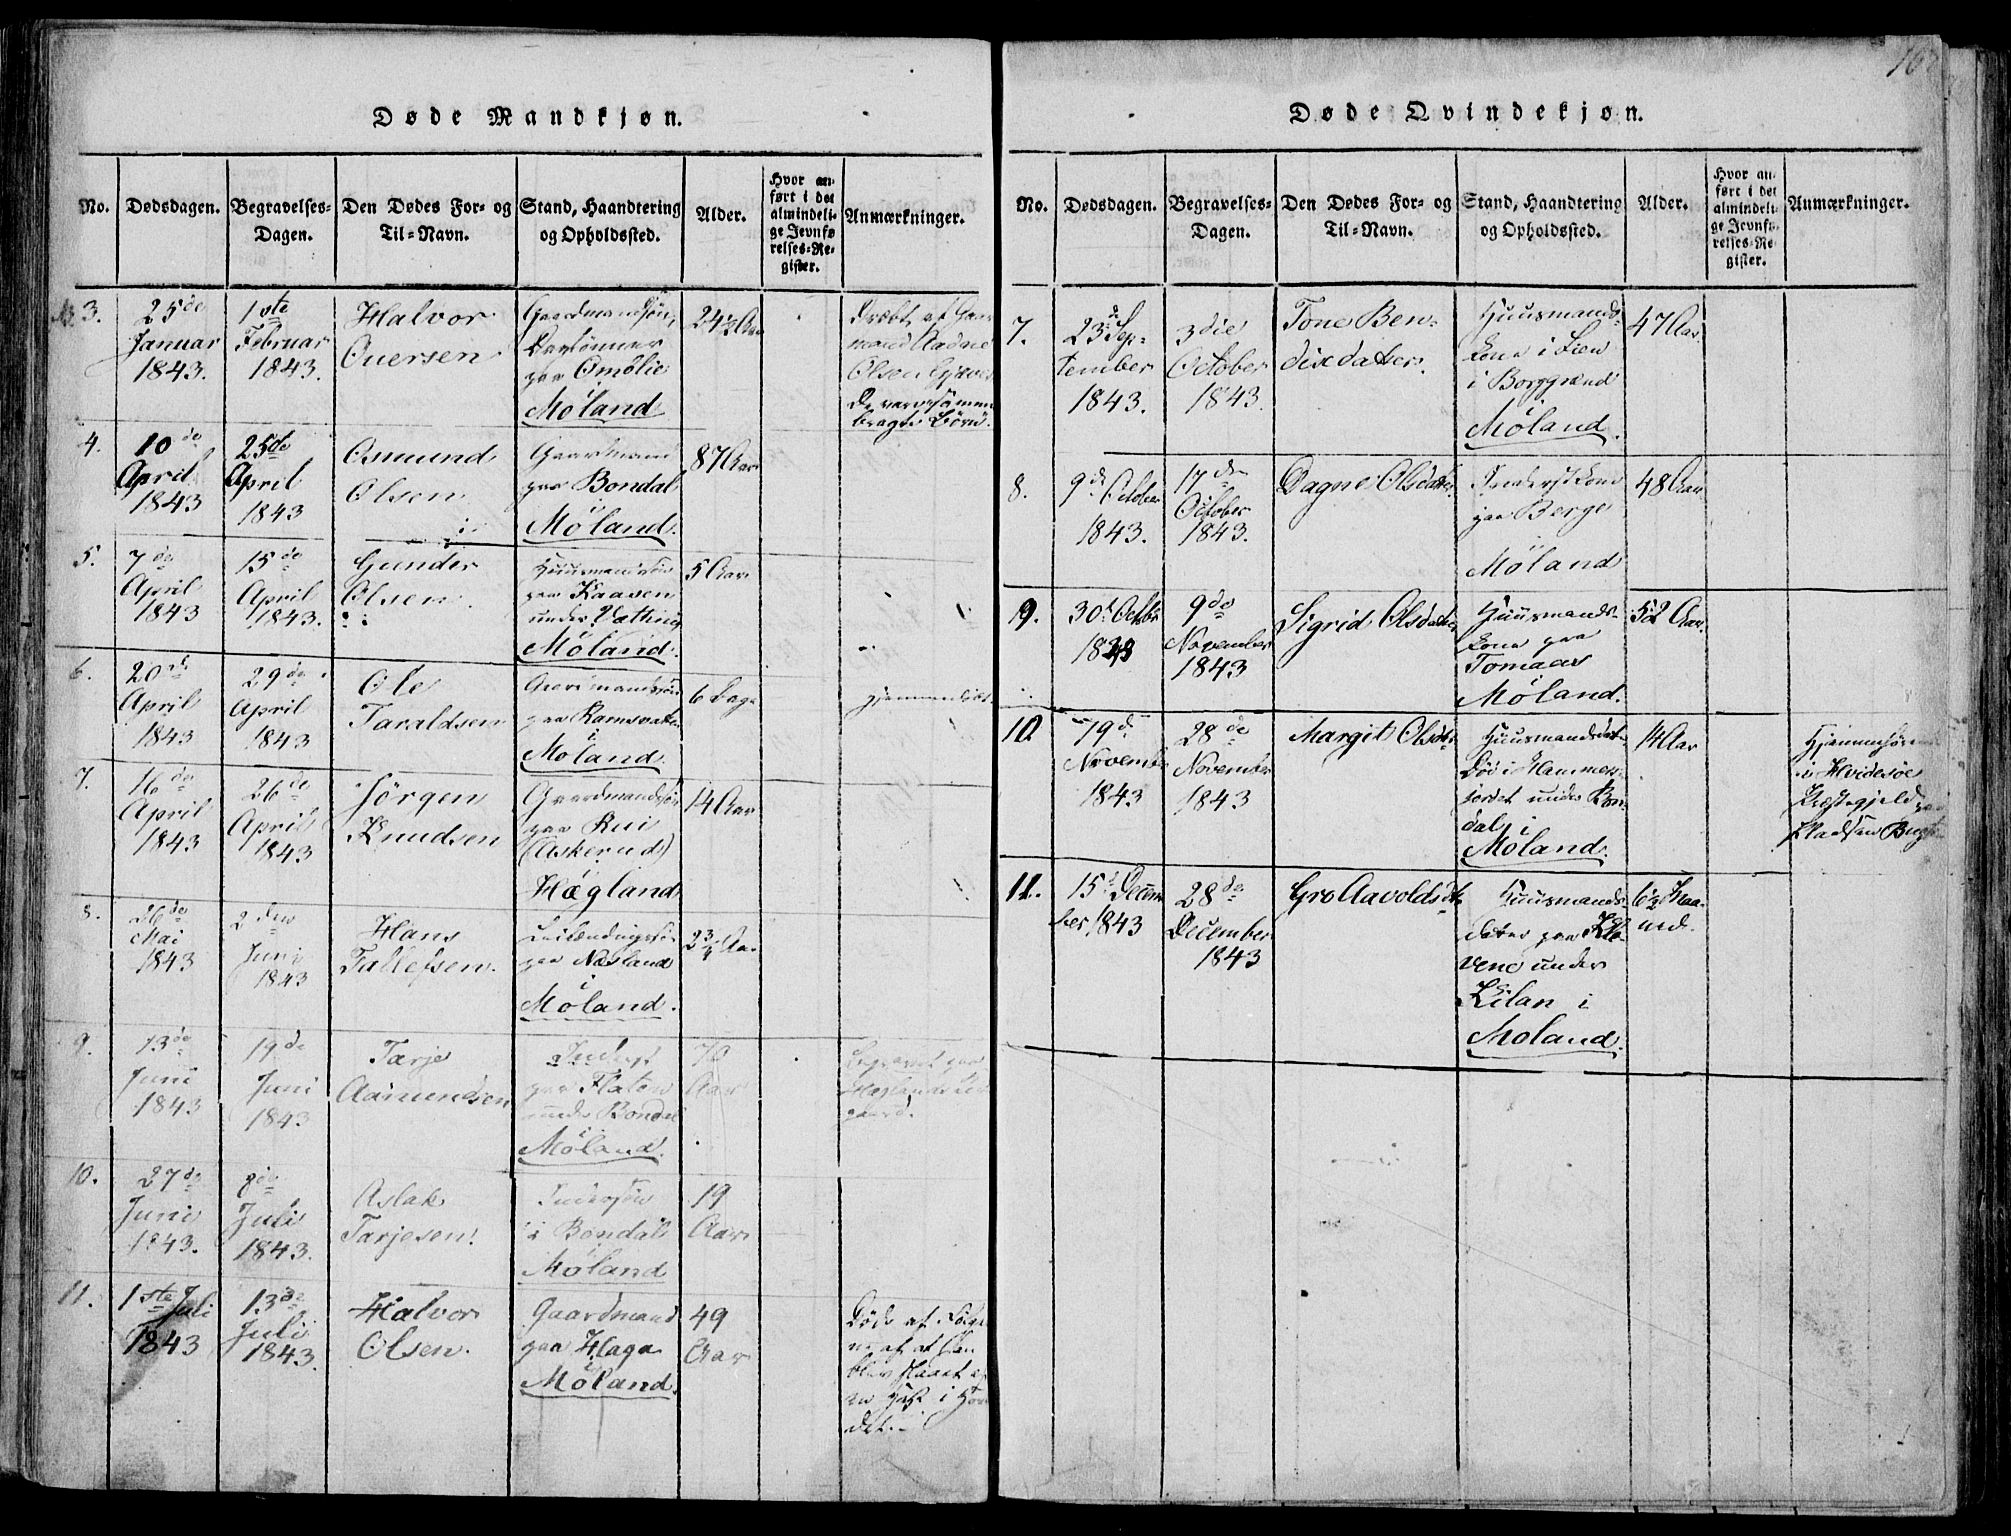 Døde Mandkjøn.
No.
Dødsdagen.
Begravelses-
Dagen.
Den Dødes For- og
Til-Navn.
Stand, Haandtering
og Opholdssted.
Alder.
Hvor an-
ført i det
almindeli-
ge Jevnfø-
relses-Re-
gister.
Anmærkninger.
3.
25de
Januar
1843.
1ste
Februar
1843.
Halvor
Ouersen
Gaardmandsøn,
paa Omølie
i
Møland
24½ Aar
Dræbt af
Olsen
bragte Børn.
4.
10de
April
1843
25de
April
1843
Osmund
Olsen
Gaardmand
paa Bondal
i
Møland.
87 Aar
5.
7de
April
1843
15de
April
1843.
Gunder
Olsen.
Huusmandssøn
paa Kaasen
under
Møland.
5 Aar
6.
20de
April
1843
29de
April
1843
Ole
Taraldsen
Gaardmandssøn
paa Ramsvatn
i
Moland.
6 Dage
hjemmedøbt
7.
16de
April
1843
26de
April
1843
Jörgen
Knudsen
Gaardmandssøn
paa Rui
(Askerud)
i
Hægland
14 Aar
8.
26de
Mai
1843
2den
Juni
1843
Hans
Tallefsen.
Leilændingssøn
paa Næsland
i
Moland.
2¾ Aar
9.
13de
Juni
1843
19de
Juni
1843
Tarje
Aasmundsen
Inderst
paa Flaten
under Bondal
i
Møland.
70
Aar
Begravet paa
Hæglands Kir-
gaard.
10.
27de
Juni
1843.
8de
Juli
1843.
Aslak
Tarjesen.
Indersøn
i Bondal
i
Møland
19
Aar
11.
1ste Juli
1843
13de
Juli
1843.
Halvor
Olsen.
Gaardmand
paa Haga
i
Møland.
49
Aar
Døde af Følger-
ne af at han
blev slaaet af
en Hest i Hove-
det.
162
Døde Qvindekjøn.
No.
Dødsdagen.
Begravelses-
Dagen.
Den Dødes For- og
Til-Navn.
Stand, Haandtering
og Opholdssted.
Alder.
Hvor an-
ført i det
almindeli-
ge Jevnfø-
relses-Re-
gister.
Anmærkninger.
7.
23de Sep-
tember
1843.
3die
October
1843.
Tone Ben-
dixdatter.
Huusmands-
kone i Lien
i Borggrend
i
Møland.
47 Aar
8.
9de October
1843.
17de
October
1843.
Dagne Olsdatter
Inderstkone
paa Berge
i
Møland
48 Aar
9.
30d Octbr
1843
9de
November
1843
Sigrid Olsdatter
Huusmands-
kone paa
Tomaas
i
Møland.
52 Aar.
10.
19d
November
1843
28de
November
1843
Margit Olsdtr
Huusmandsdatter
Død i Hammers-
jordet under Bon-
dal i
Moland.
14 Aar
Hjemmehørende
i Hvidesøe
Præstegjeld
Pladsen
11.
15d Decem-
ber 1843
28de
December
1843
Gro Aavoldsdtr
Huusmands-
datter paa Kle-
vene under
Kilan i
Moland.
6½ Maa-
ned.